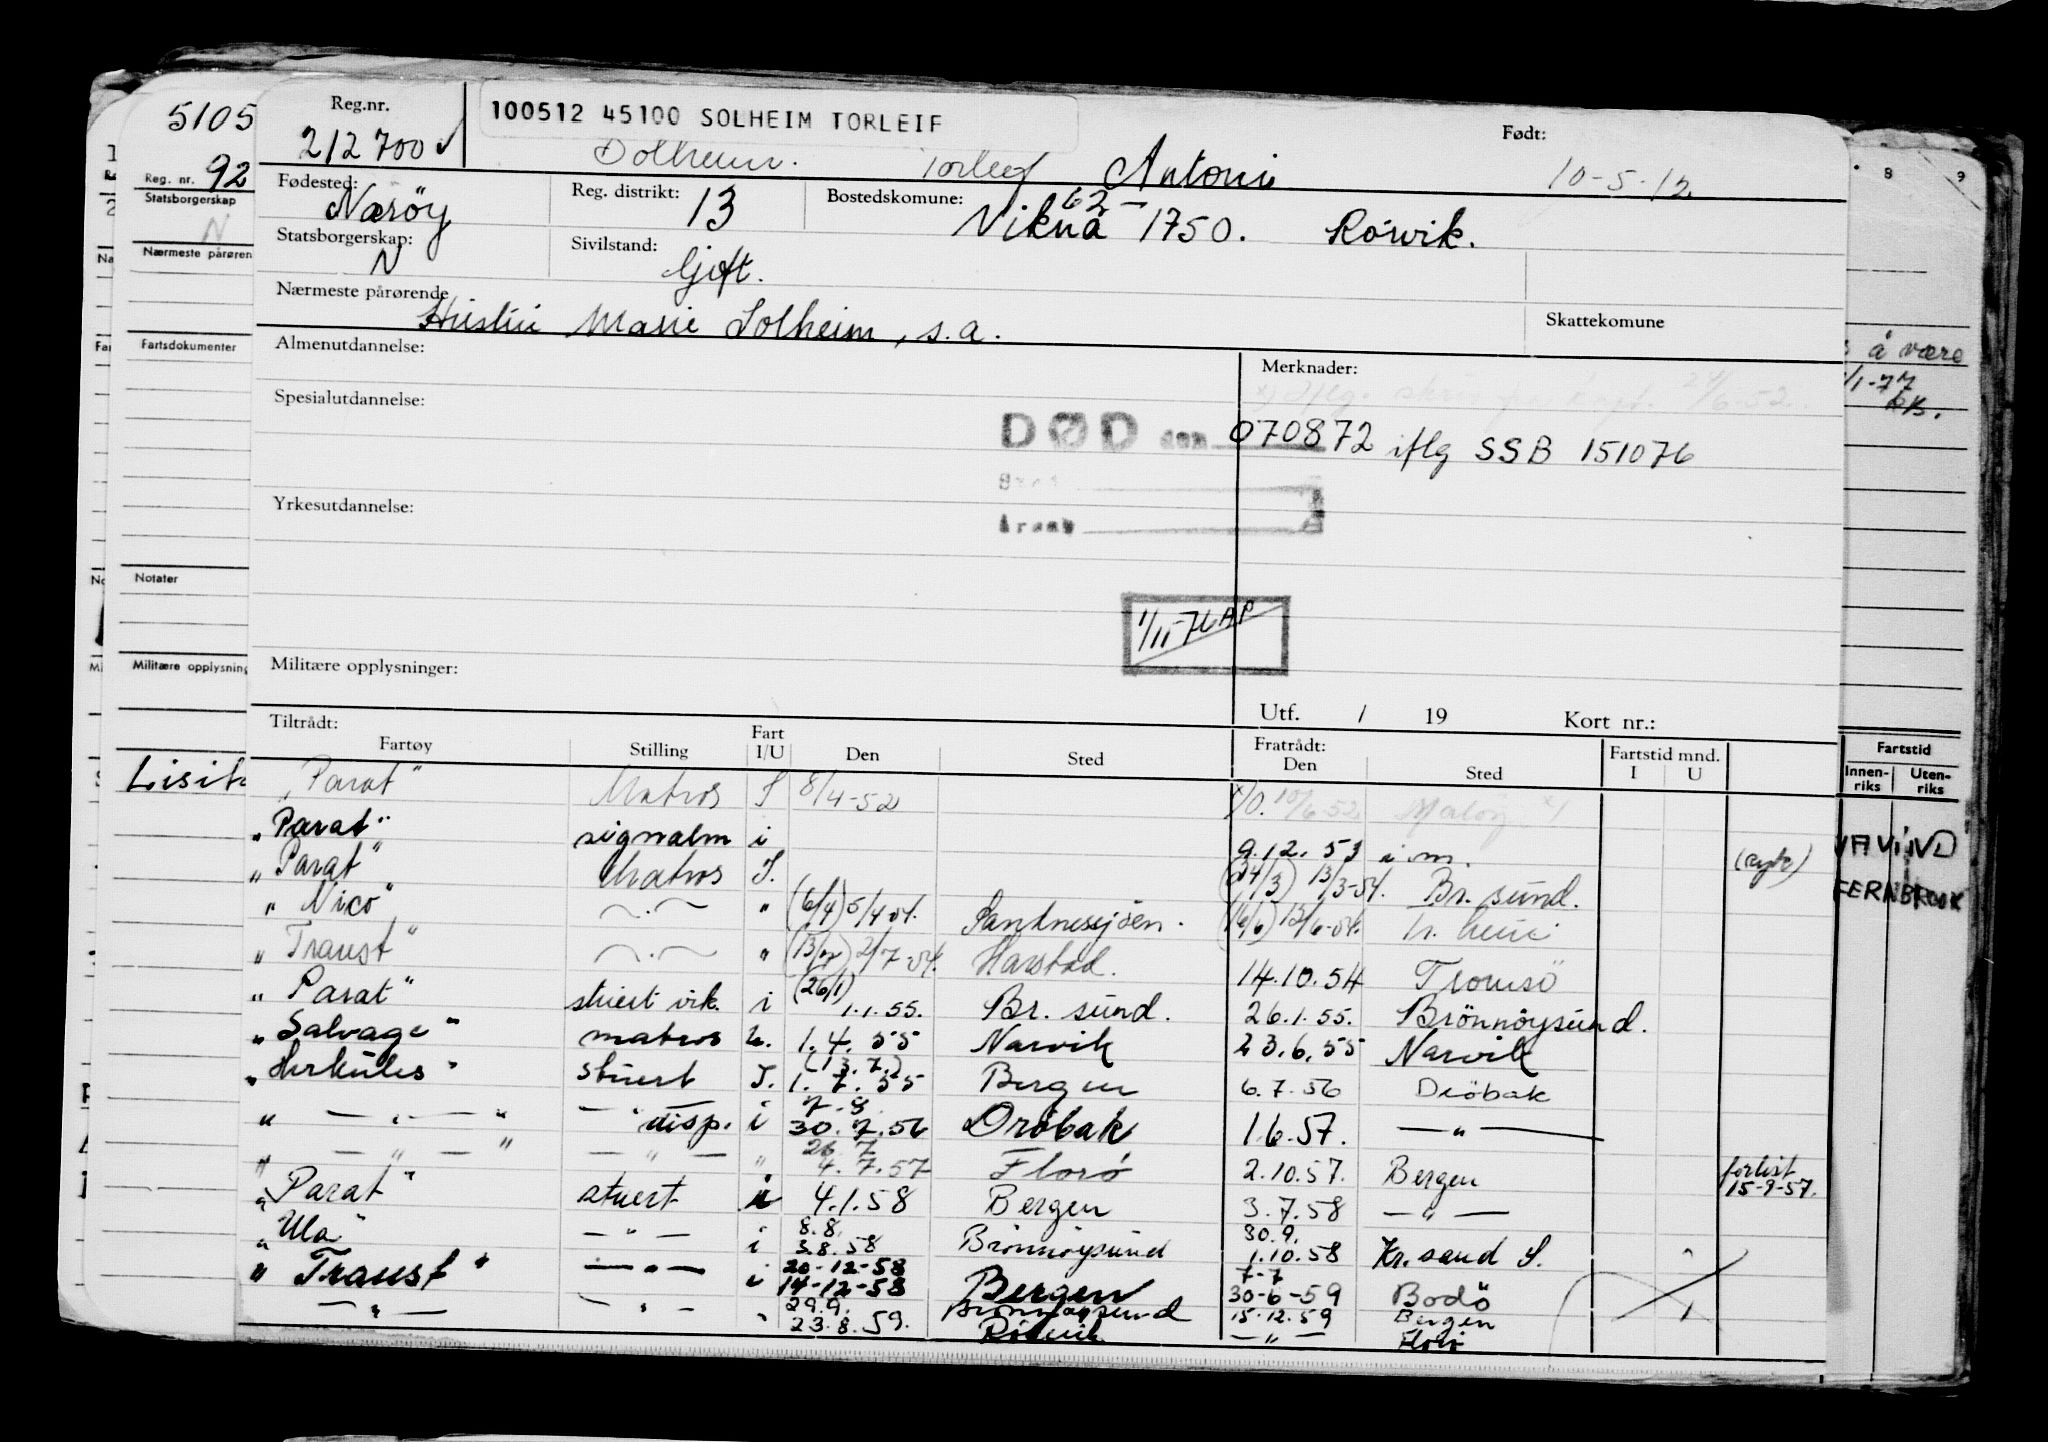 5105
Reg. nr. 92
Statsborgerskap
N
Nærmeste pårøren
Fartsdokumenter
Notater
Militære opplysning
Lisita
Reg.nr.
212700
100512 45100 SOLHEIM TORLEIF
Solheim. Torleif Antoni
Født:
10-5-12
Fødested:
Nærøy
Reg. distrikt:
13
Bostedskomune:
62-
Vikna 1750. Rörvik.
Statsborgerskap:
N
Sivilstand:
Gift.
Nærmeste pårørende
Hustru Marie Solheim, s.a.
Skattekomune
Almenutdannelse:
Merknader:
x) Iflg. skriv fra kapt. 24/6-52.
Spesialutdannelse:
DØD den 070872 iflg SSB 151076
Yrkesutdannelse:
Årsak
1/11-76 AP
Militære opplysninger:
Utf. / 19 Kort nr.:
Tiltrådt: Fratrådt: Fartstid mnd.
Fartøy Stilling Fart I/U Den Sted Den Sted I U
"Parat" Matros I 8/4-52 x/0. 10/6-52. Måløy x/
"Parat" signalm i 9.12.53 i.m. (syk)
"Parat" Matros I. (24/3) 13/3-54. Br. sund.
"Nico" —.— " (6/4) 5/4-54. Sandnessjöen. (16/6) 12/6-54.
"Traust" —.— " 2/7-54. Harstad. 14.10.54 Tromsö
"Parat" stuert vik. i (26/1) 1.1.55. Br. sund. 26.1.55. Brönnöysund.
"Salvage" matros u. 1.4.55 Narvik 23.6.55 Narvik
"Herkules" stuert I. (13.7.) 1.7.55 Bergen 6.7.56 Dröbak
" — " — " — " disp. i 30.7.56 Dröbak 1.6.57. — " —
" — " — " — " — " 26.7 4.7.57 Florø 2.10.57. Bergen forlist 15-9-57.
"Parat" stuert i 4.1.58 Bergen 3.7.58 — " —
"Ula" — " — i 8.8. 3.8.58 Brönnöysund 30.9. 1.10.58 Kr. sand S.
"Traust" — " — i 20-12-58 14-12-58 Bergen 7-7 30-6-59 Bodö
— " — — " — " 29.9. 23.8.59. Brönnöysund Rörvik 15.12.59 — " — Bergen Florö
8 9
å være
/1-77
Fartstid
Innenriks Utenriks
FERNBROOK